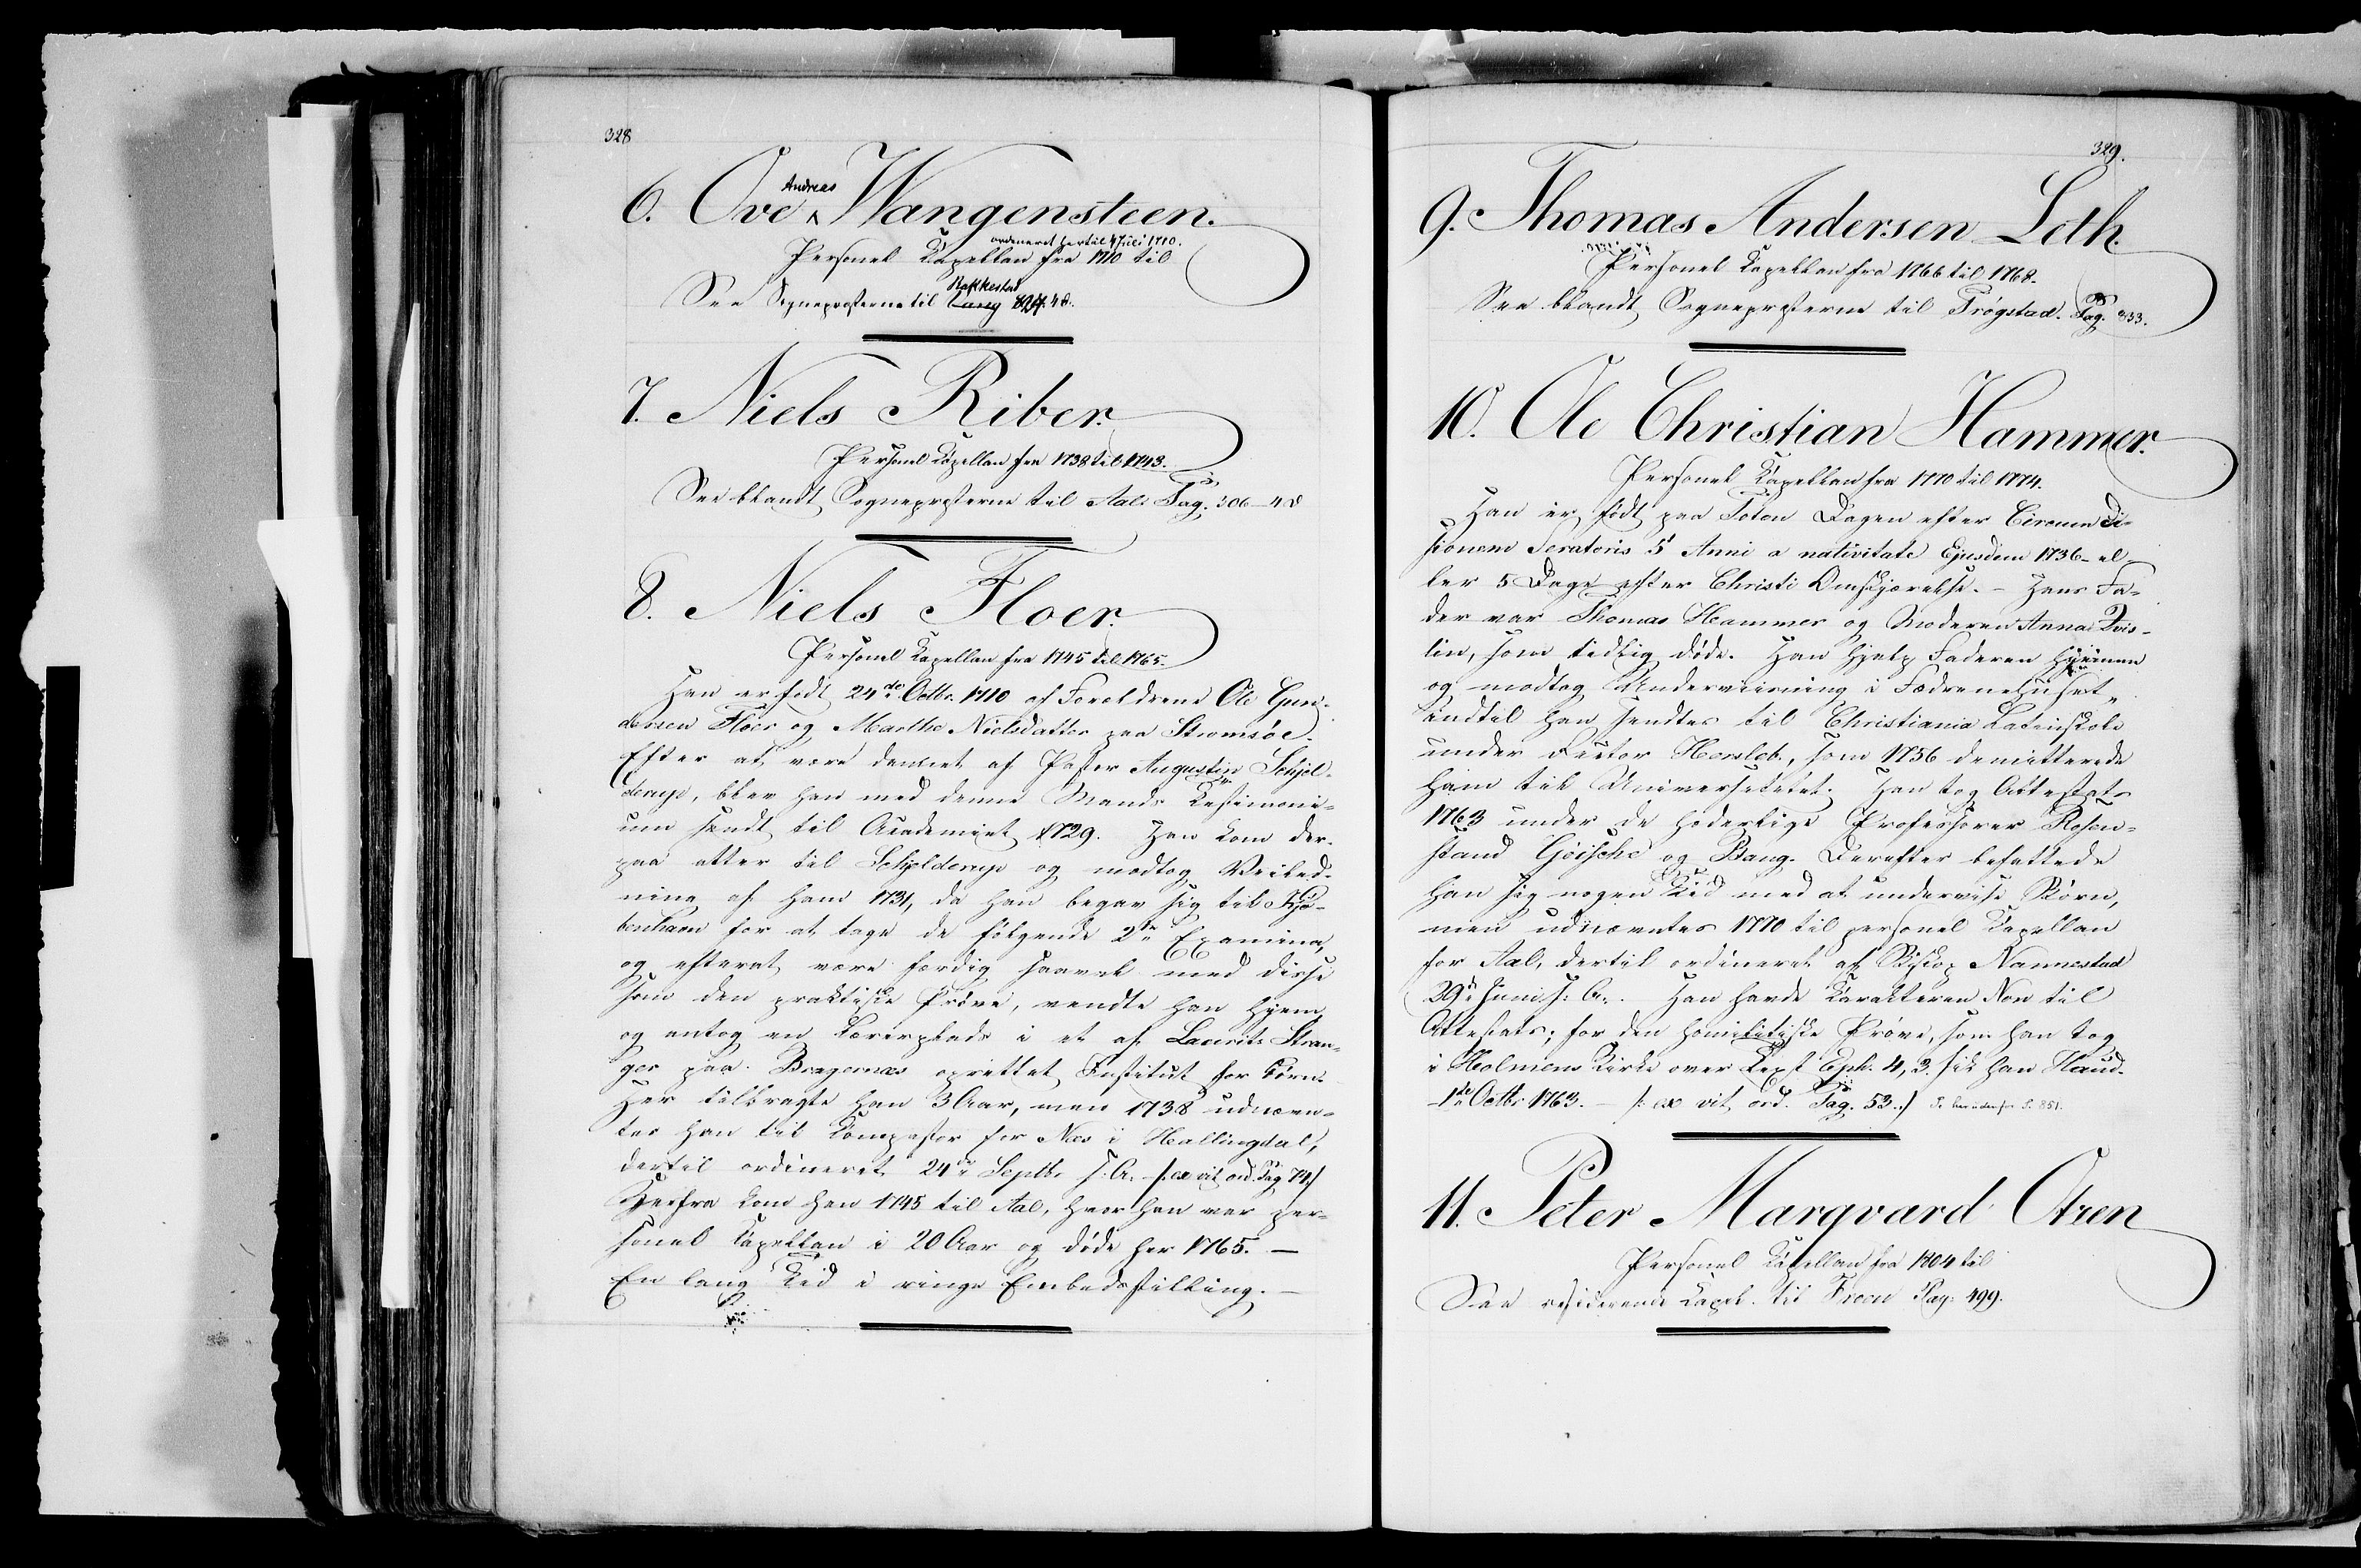 328
6. Ove Andreas Wangensteen.
ordineret hertil 4 Juli 1710.
Personel Kapellan fra 1710 til
Rakkestad
See Sogneprsterne til Vang 4d.
7. Niels Riber.
Personel Kapellan fra 1738 til 1743.
See blandt Sogneprsterne til Aal. Pag. 306-4d
8. Niels Floer.
Personel Kapellan fra 1745 til 1765.
Han er født 24de Octbr. 1710 af Foreldrene Ole Gun-
dersen Floer og Marthe Nielsdatter paa Stromsöe.
Efter at være dannet af Pastor Augustin Schjel-
derup, blev han med denne Mands Testimoni-
um sendt til Academiet 1729. Han kom der-
paa atter til Schjelderup og modtog Veiled-
ning af ham 1731, da han begav sig til Kjø-
benhavn for at tage de følgende 2de Examina,
og efterat være færdig saavel med disse
som den praktiske Prøve, vendte han hjem
og antog en Lærerplads i et af Laurits Stran-
ger paa Bragernæs oprettet Institut for Børn.
Her tilbragte han 3 Aar, men 1738 udnævn-
tes han til Kompastor for Næs i Hallingdal,
dertil ordineret 24de Septbr. s: A. /: ex vit. ord. Pag. 74 :/
Herfra kom han 1745 til Aal, hvor han var per-
sonel Kapellan i 20 Aar og døde her 1765. —
En lang Tid i ringe Embedsstilling. —
329.
9. Thomas Andersen Leth.
Personel Kapellan fra 1766 til 1768.
See blandt Sogneprsterne til Trøgstad. Pag. 333.
10. Ole Christian Hammer.
Personel Kapellan fra 1770 til 1774.
Han er født paa Toten Dagen efter Circumci-
sionem Servatoris 5 Anni a nativitate Ejusdem 1736 - el
ler 5 Dage efter Christi Omskjærelse. - Hans Fa-
der var Thomas Hammer og Moderen Anna Qvis-
lin, som tidlig døde. Han hjalp Faderen hjemme
og modtog Underviisning i Fædrenehuset,
indtil han sendtes til Christiania Latinskole
under Rector Hersleb, som 1756 demitterede
ham til Universitetet. Han tog Attestats
1763 under de hæderlige Professorer Rosen-
stand Göische og Bang. Derefter befattede
han sig nogen Tid med at undervise Børn,
men udnævntes 1770 til personel Kapellan
for Aal, dertil ordineret af Biskop Nannestad
29de Juni s: A. Han havde Karakteren Non til
Attestats; for den homiletiske Prøve, som han tog
i Holmens Kirke over Text Eph. 4, 3. fik han Haud.
1ste Octbr. 1763. - /: ex vit. ord. Pag. 53. :/ S. 851.
11. Peter Marqvard Otzen
Personel Kapellan fra 1804 til
See residerende Kapel. til Froen Pag. 499.